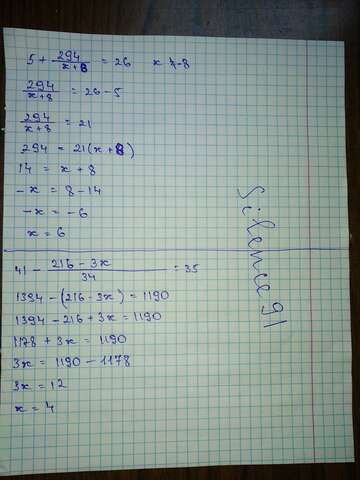 5 + 294/(x+8) = 26   x ≠ -8
294/(x+8) = 26 - 5
294/(x+8) = 21
294 = 21(x+8)
14 = x + 8
-x = 8 - 14
-x = -6
x = 6
41 - (216 - 3x)/34 = 35
1394 - (216 - 3x) = 1190
1394 - 216 + 3x = 1190
1178 + 3x = 1190
3x = 1190 - 1178
3x = 12
x = 4
Silence91